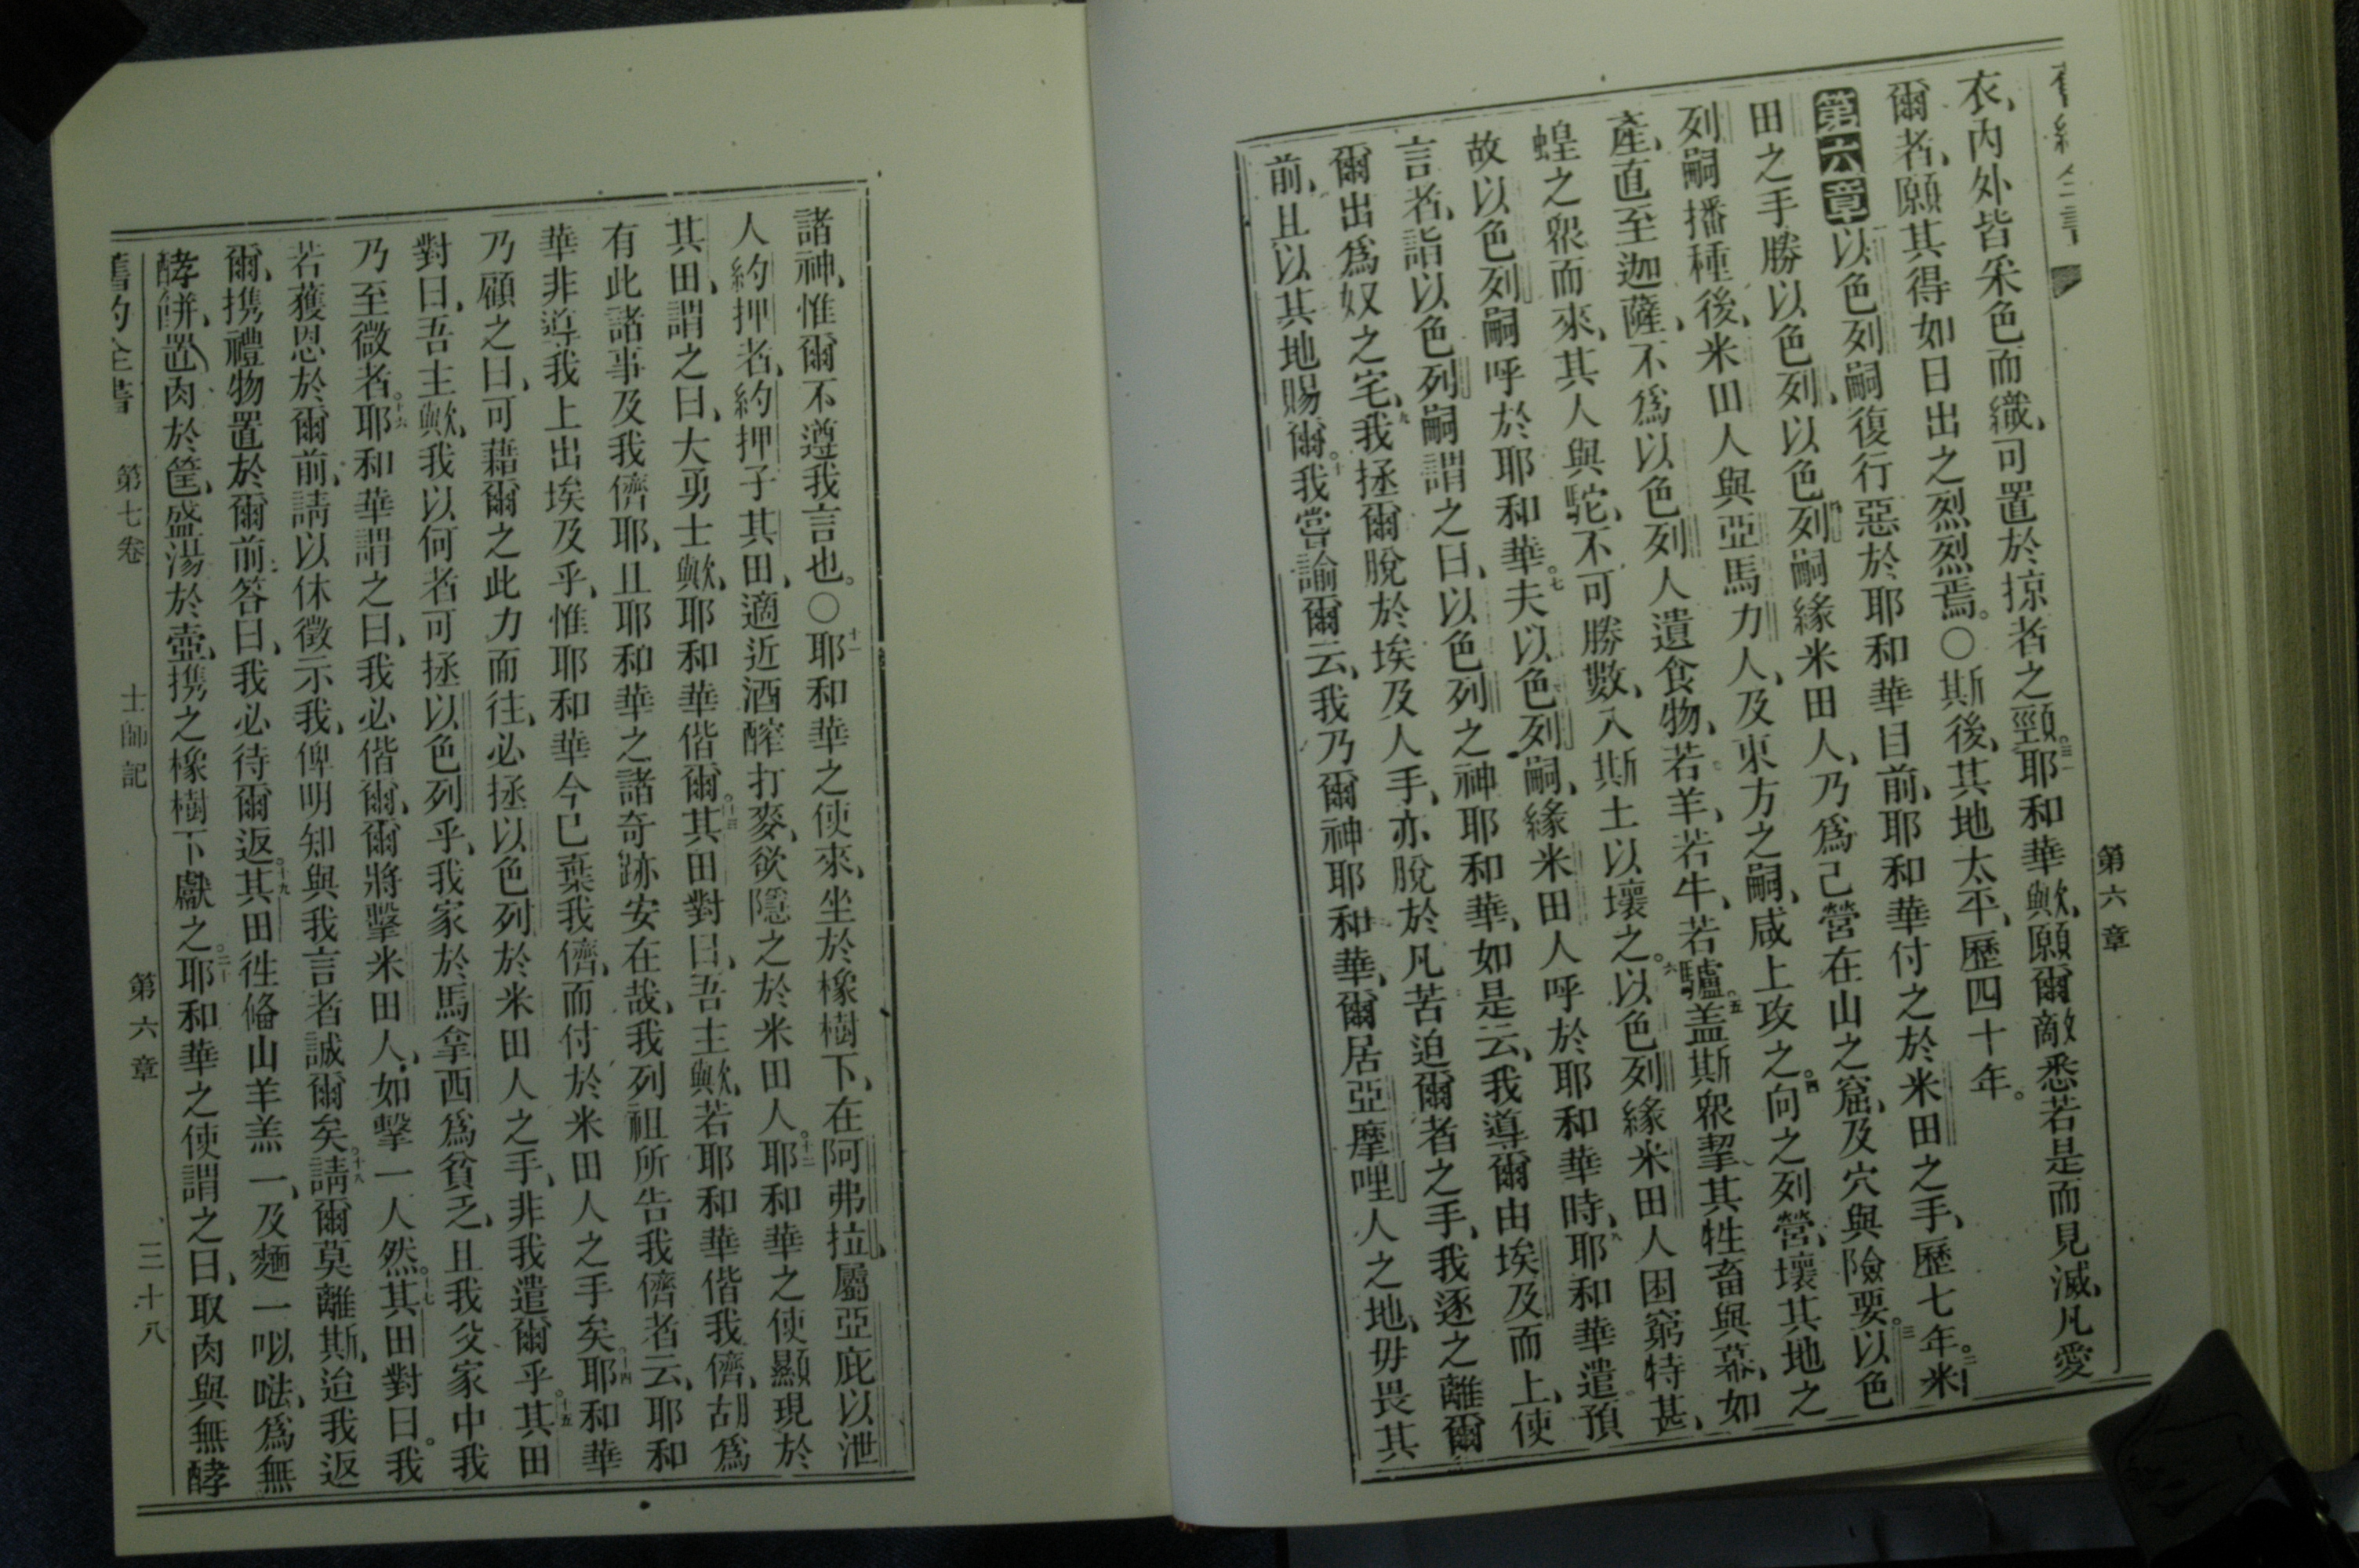 第六章
衣、內外皆采色而織、可置於掠者之頸。三一耶和華歟、願爾敵悉若是而見滅、凡愛
爾者、願其得如日出之烈烈焉。○斯後、其地太平、歷四十年。
第六章以色列嗣復行惡於耶和華目前、耶和華付之於米田之手、歷七年。二米
田之手勝以色列、以色列嗣緣米田人、乃爲己營在山之窟、及穴與險要。三以色
列嗣播種後、米田人與亞馬力人、及東方之嗣、咸上攻之。四向之列營、壞其地之
產、直至迦薩、不爲以色列人遺食物、若羊、若牛、若驢。五盖斯衆挈其牲畜與幕、如
蝗之衆而來、其人與駝、不可勝數、入斯土以壞之。六以色列緣米田人困窮特甚、
故以色列嗣呼於耶和華。七夫以色列嗣、緣米田人呼於耶和華時、八耶和華遣預
言者、詣以色列嗣謂之曰、以色列之神耶和華、如是云、我導爾由埃及而上、使
爾出爲奴之宅、九我拯爾脫於埃及人手、亦脫於凡苦迫爾者之手、我逐之離爾
前、且以其地賜爾。十我嘗諭爾云、我乃爾神耶和華、爾居亞摩哩人之地、毋畏其
諸神、惟爾不遵我言也。○十一耶和華之使來、坐於橡樹下、在阿弗拉、屬亞庇以泄
人約押者、約押子其田、適近酒醡打麥、欲隱之於米田人。十二耶和華之使顯現於
其田、謂之曰、大勇士歟、耶和華偕爾。十三其田對曰、吾主歟、若耶和華偕我儕、胡爲
有此諸事及我儕耶、且耶和華之諸奇跡安在哉、我列祖所告我儕者云、耶和
華非導我上出埃及乎、惟耶和華今已棄我儕、而付於米田人之手矣。十四耶和華
乃顧之曰、可藉爾之此力而往、必拯以色列於米田人之手、非我遣爾乎。十五其田
對曰、吾主歟、我以何者可拯以色列乎、我家於馬拿西爲貧乏、且我父家中我
乃至微者。十六耶和華謂之曰、我必偕爾、爾將擊米田人、如擊一人然。十七其田對曰。我
若獲恩於爾前、請以休徵示我、俾明知與我言者誠爾矣。十八請爾莫離斯、迨我返
爾、携禮物置於爾前、答曰、我必待爾返。十九其田徃偹山羊羔一、及麵一㕽㗁、爲無
酵餅、置肉於筐、盛湯於壺、携之橡樹下獻之。二十耶和華之使謂之曰、取肉與無酵
舊約全書 第七卷 士師記 第六章 三十八